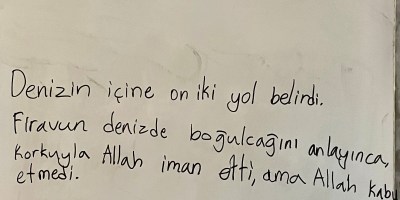 Denizin içine on iki yol belirdi.
Firavun denizde boğulcağını anlayınca,
korkuyla Allah iman etti, ama Allah kabu
etmedi.